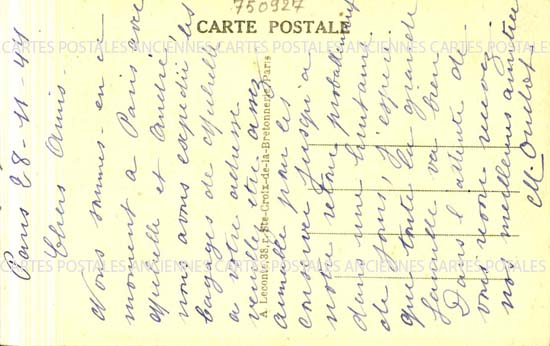 750927
CARTE POSTALE
Paris 28-11-44
Chers Amis.
Nous sommes en ce
moment à Paris avec
Michelle et André,
nous avons expédié les
bagages de Michelle
à votre adresse
veuillez être assez
aimable pour les
conserver jusqu'à
notre retour probablement
dans une huitaine
de jours, j'espère
que toute la grande
famille va bien
Dans l'attente de
vous revoir recevez
nos meilleures amitiés
A. Leconte, 38, r. Ste-Croix-de-la-Bretonnerie, Paris
CARTES POSTALES ANCIENNES CARTES POSTALES ANCIENNES CARTES POSTALES